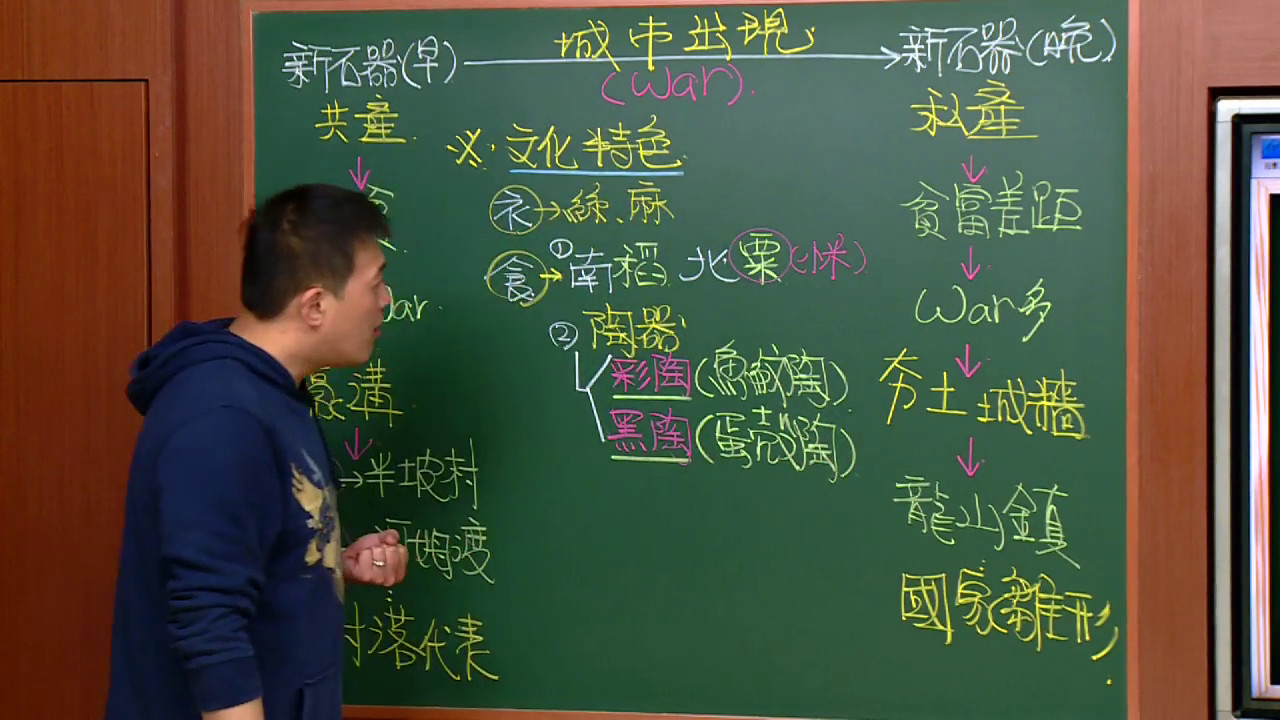 新石器(早) 城市出現 新石器(晚)
(War)
共產
私產
※ 文化特色
貧富差距
衣→絲、麻
食→①南稻 北粟(小米)
War多
②陶器
彩陶(魚紋陶)
黑陶(蛋殼陶)
夯土城牆
壕溝
→半坡村
河姆渡
村落代表
龍山鎮
國家雛形